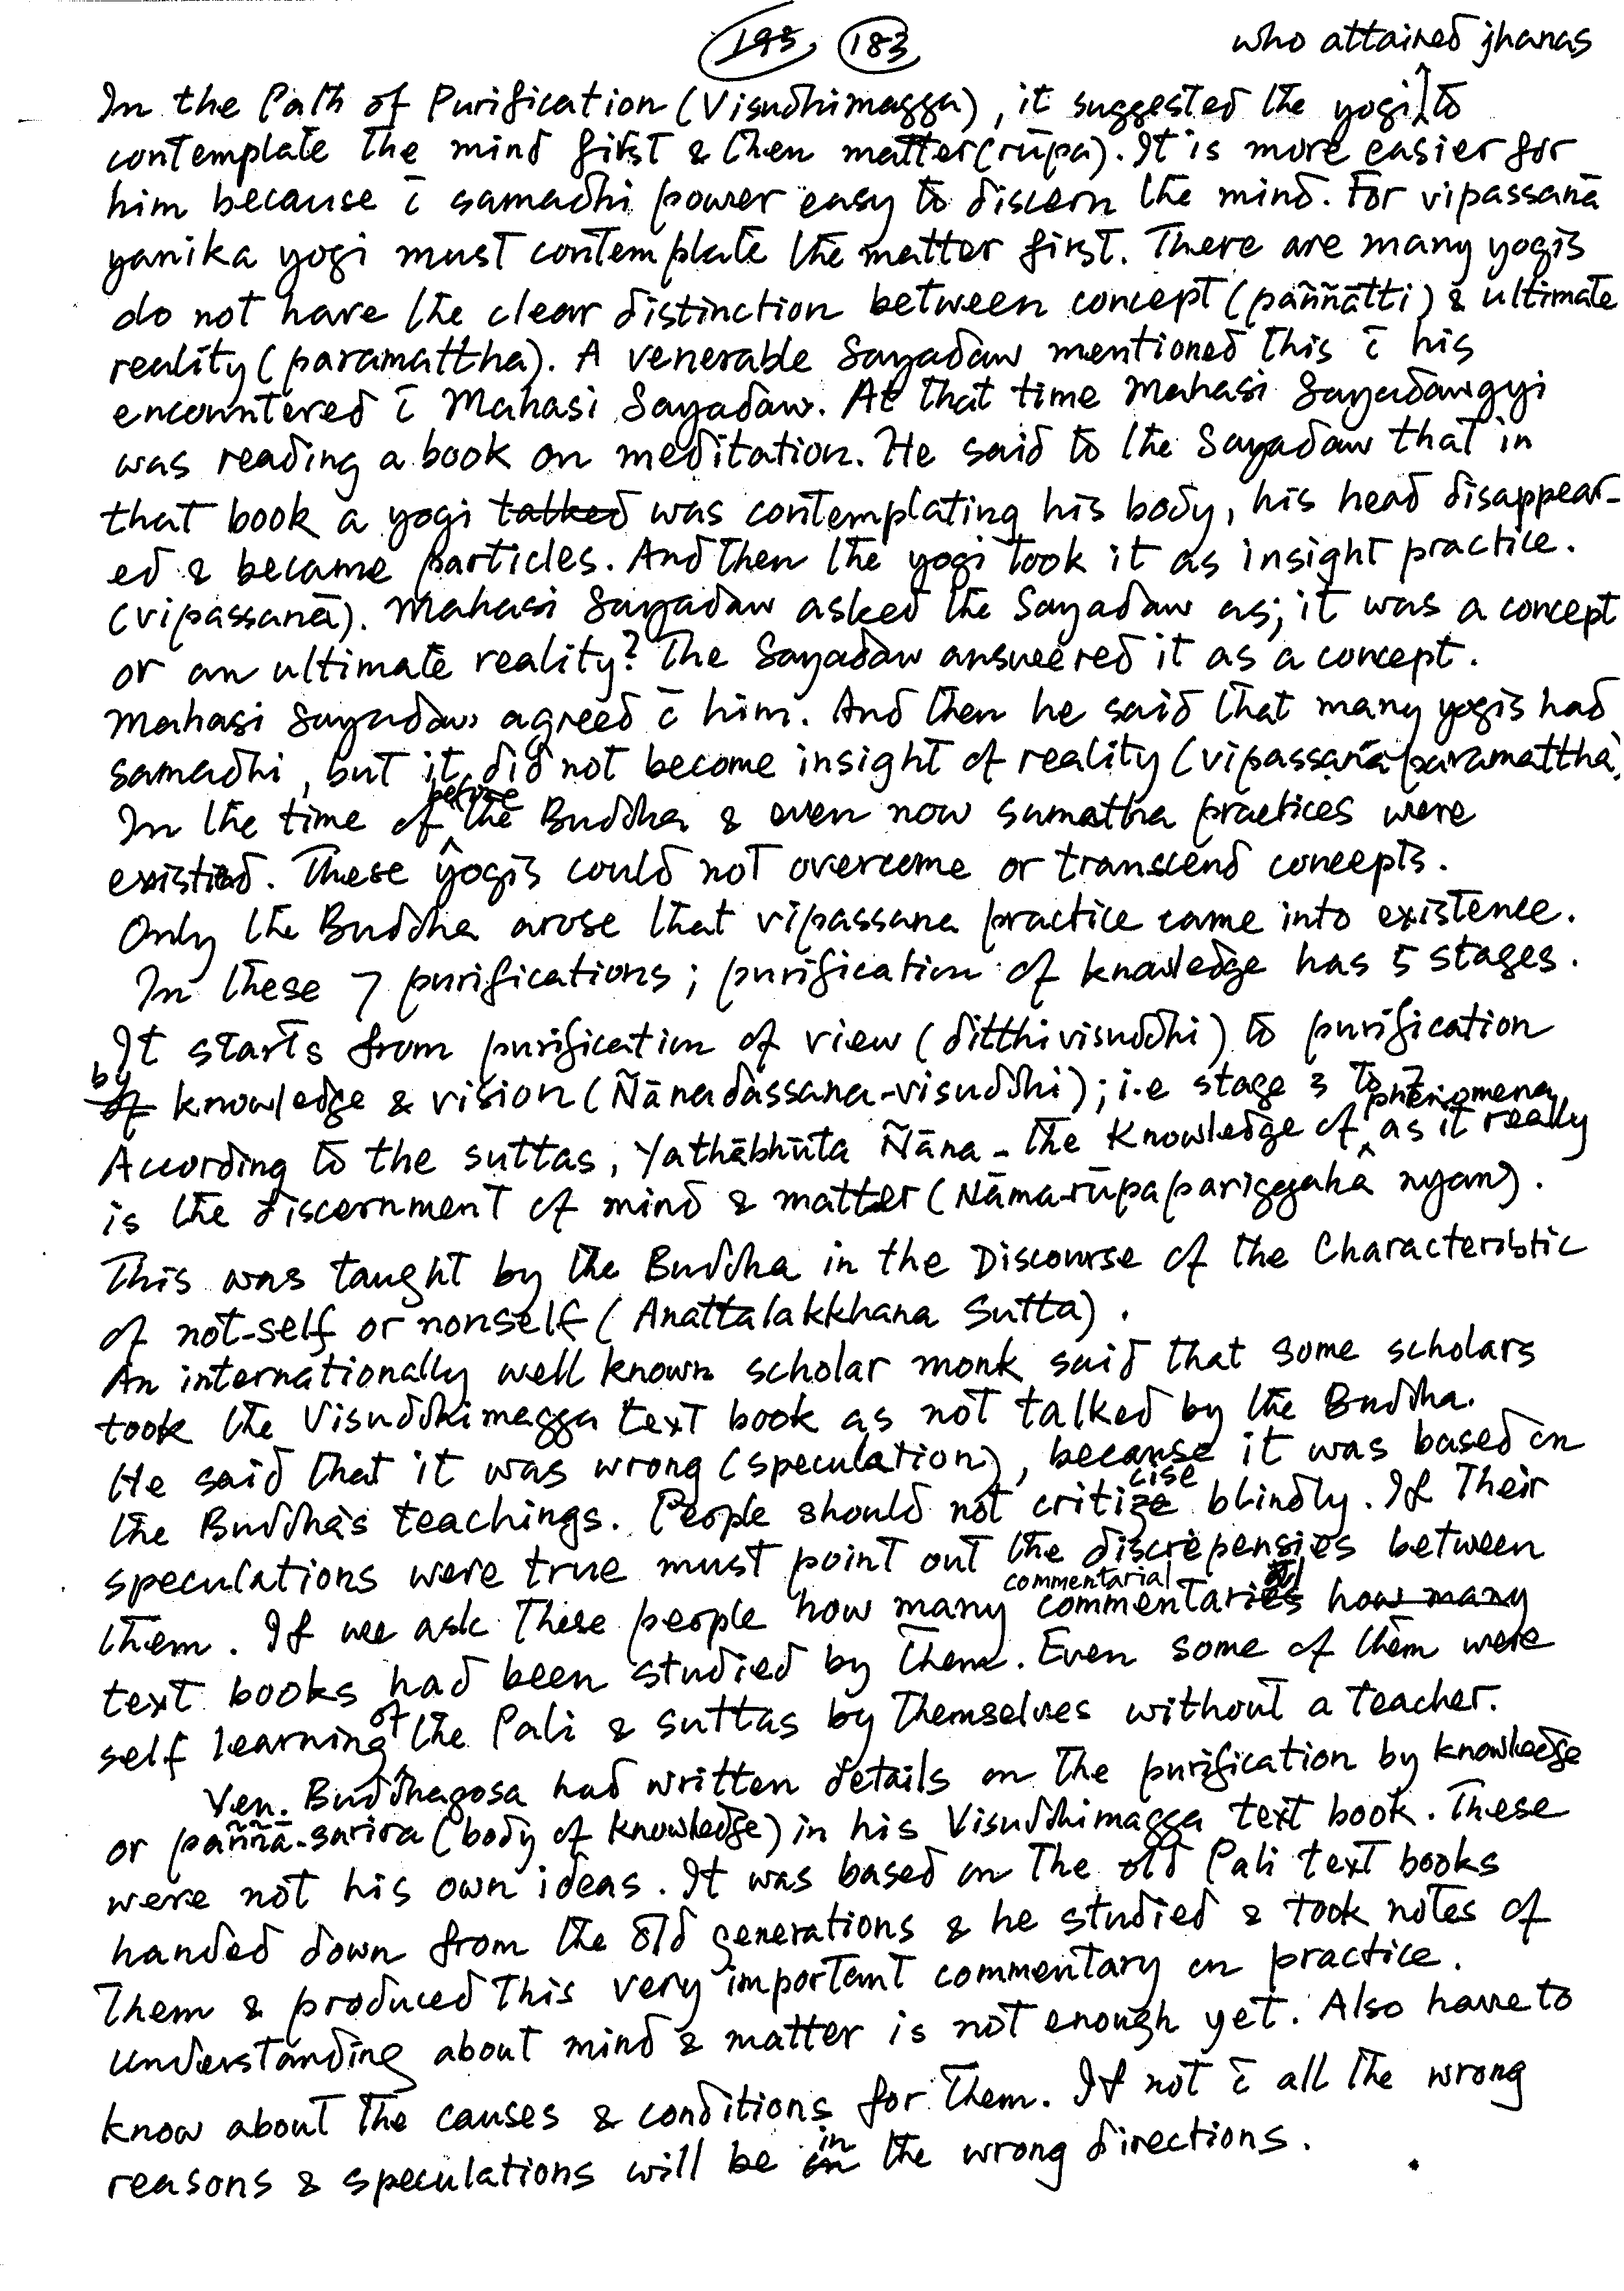 195, 183
who attained jhanas
In the Path of Purification (Visudhimagga), it suggested the yogi to
contemplate the mind first & then matter (rūpa). It is more easier for
him because c̄ samadhi power easy to discern the mind. For vipassanā
yanika yogi must contemplate the matter first. There are many yogis
do not have the clear distinction between concept (paññātti) & ultimate
reality (paramattha). A venerable Sayadaw mentioned this c̄ his
encountered c̄ Mahasi Sayadaw. At that time Mahasi Sayadawgyi
was reading a book on meditation. He said to the Sayadaw that in
that book a yogi talked was contemplating his body, his head disappear-
ed & became particles. And then the yogi took it as insight practice.
(vipassanā). Mahasi Sayadaw asked the Sayadaw as; it was a concept
or an ultimate reality? The Sayadaw answeered it as a concept.
Mahasi Sayadaw agreed c̄ him. And then he said that many yogis had
samadhi, but it did not become insight of reality (vipassanā paramattha)
before
In the time of the Buddha & even now samatha practices were
existied. These yogis could not overcome or transcend concepts.
Only the Buddha arose that vipassana practice came into existence.
In these 7 purifications; purification of knowledge has 5 stages.
It starts from purification of view (ditthivisuddhi) to purification
by
of knowledge & vision (Ñānadassana-visuddhi); i.e stage 3 to 7
phenomena
According to the suttas, Yathābhūta Ñāna - the Knowledge of as it really
is the discernment of mind & matter (Nāma-rūpa pariggaha nyan).
This was taught by the Buddha in the Discourse of the Characteristic
of not-self or nonself (Anattalakkhana Sutta).
An internationally well known scholar monk said that some scholars
took the Visuddhimagga text book as not talked by the Buddha.
He said that it was wrong (speculation), because it was based on
cise
the Buddha's teachings. People should not critize blindly. If Their
speculations were true must point out the discrepensies between
commentarial
them. If we ask these people how many commentaries how many
text books had been studied by them. Even some of them were
of
self learning the Pali & suttas by themselves without a teacher.
Ven. Buddhagosa had written details on the purification by knowledge
or paññā-sarira (body of knowledge) in his Visuddhimagga text book. These
were not his own ideas. It was based on the old Pali text books
handed down from the old generations & he studied & took notes of
them & produced this very important commentary on practice.
Understanding about mind & matter is not enough yet. Also have to
know about the causes & conditions for them. If not c̄ all the wrong
in
reasons & speculations will be on the wrong directions.